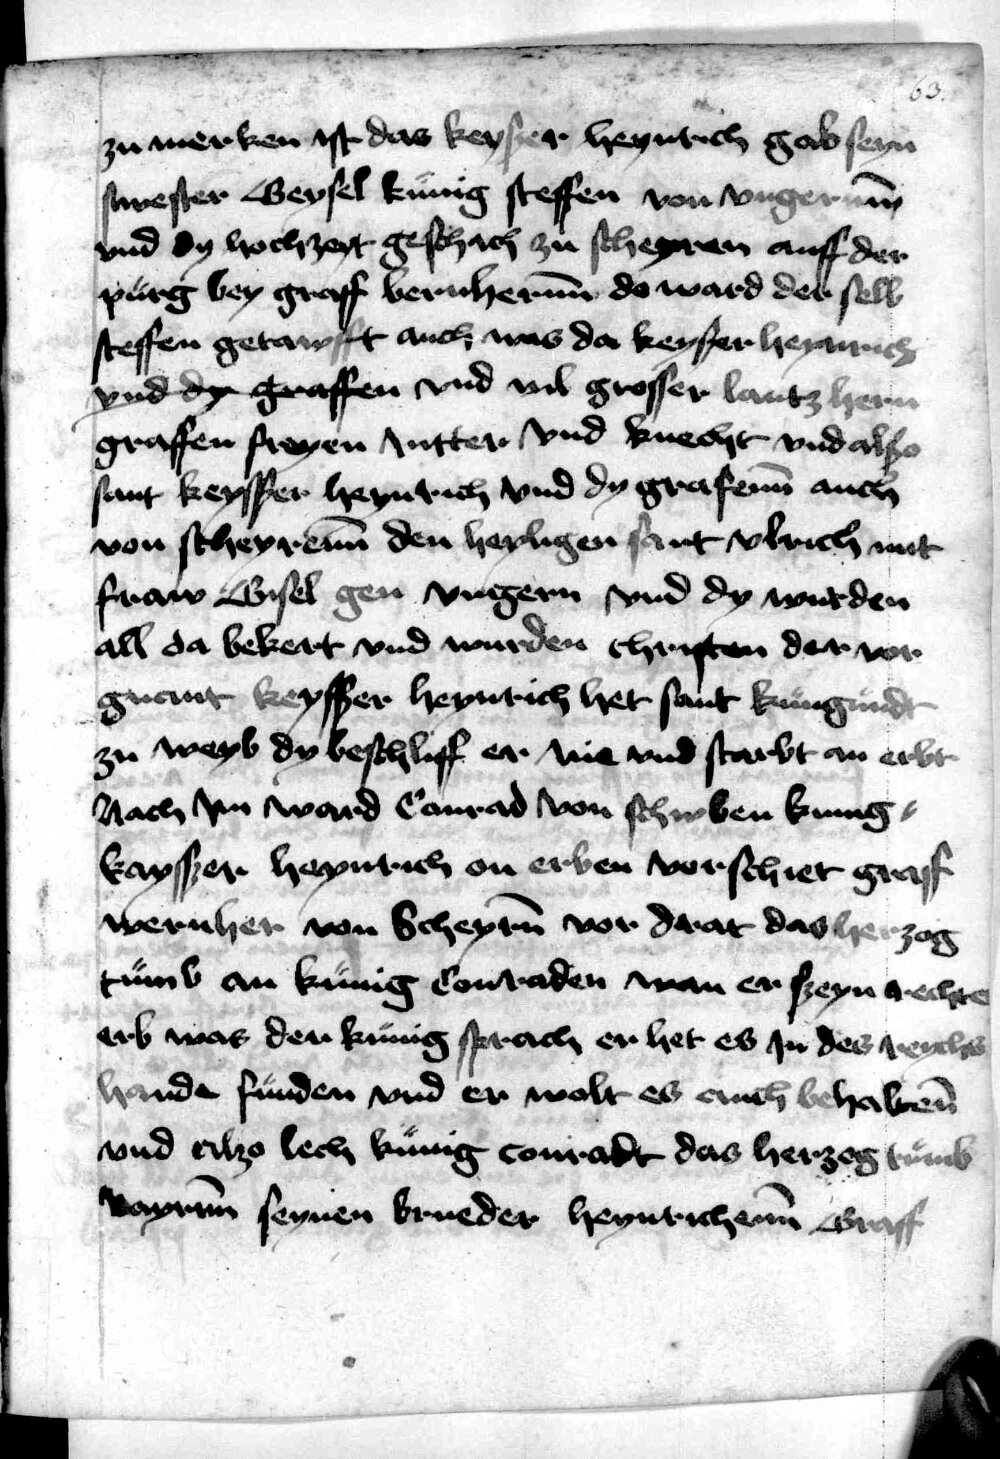 63
zu merken ist das keyszer heynrich gab seyn
swester Geysel künig steffen von vngernn
vnd dy hochzeyt geschach zu scheyren auff der
pürg bey graff bernhernn do ward der selb
steffen getawfft auch was da keyser heynrich
vnd dy graffen vnd vil grosser lantz hern
graffen freyen ritter vnd knecht vnd alszo
sant keyszer heynrich vnd dy grafenn auch
von scheyrenn den heyligen sant vlrich mit
fraw Gisel gen vngern vnd dy wurden
all da bekert vnd wurden christen der vor
gnent keyszer heynrich het sant küngündt
zu weyb dy beschliff er nie vnd starbt an erbt
Nach ym ward Conrad von schwben kunig
kayszer heynrich on erben vorschiet graff
wernher von Scheyrn vor drat das herzog
tümb an künig Conraden wan er szeyn rechte
erb was der künig sprach er het es jn des reychs
hande fünden vnd er wolt es auch behaltenn
vnd alzo lech künig conradt das herzog tümb
bayrnn seynen brueder heynrichenn Graff